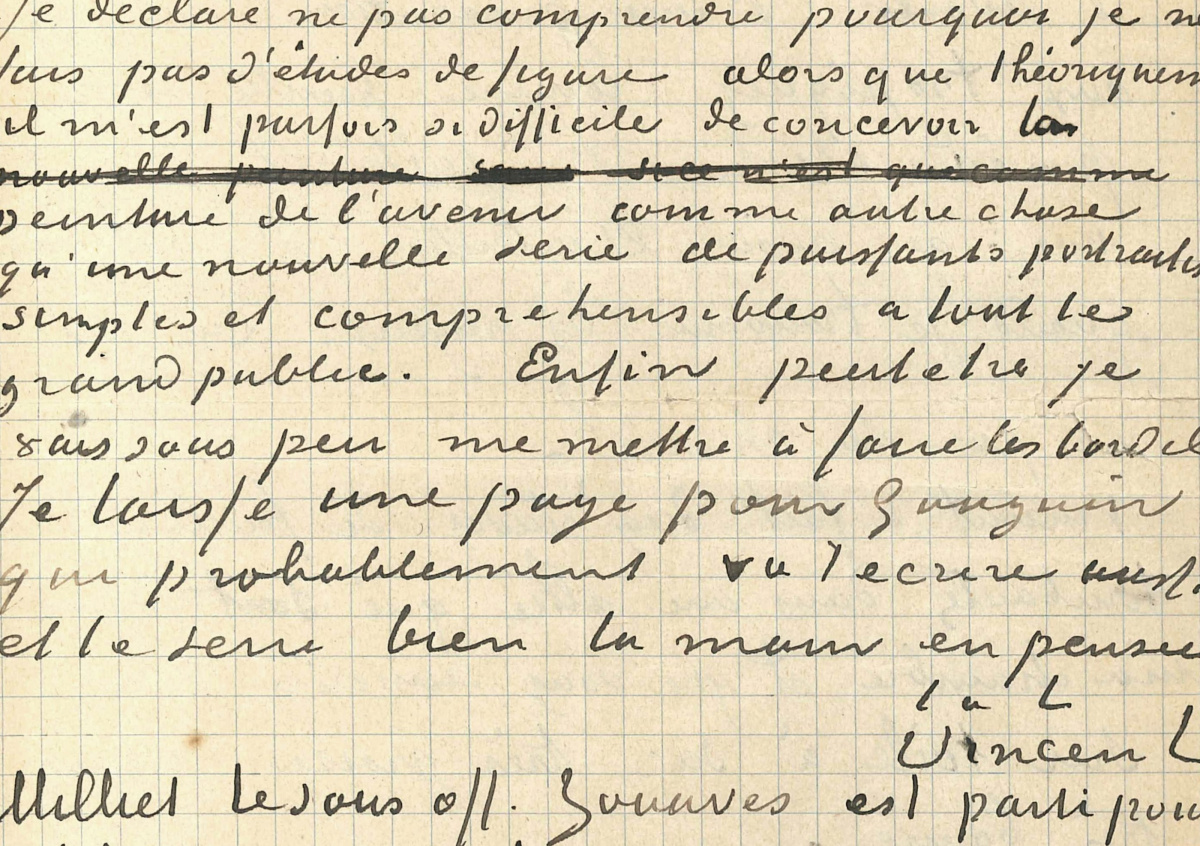 Je déclare ne pas comprendre pourquoi je ne
fais pas d'études de figure alors que théoriquem
il m'est parfois si difficile de concevoir la
nouvelle peinture si ce n'est que comme
peinture de l'avenir comme autre chose
qu'une nouvelle serie de puissants portraits
simples et comprehensibles a tout le
grand public. Enfin peutetre je
vais sous peu me mettre à faire les bordel
Je laisse une page pour Gauguin
qui probablement va t'ecrire aussi
et te serre bien la main en pensée
t à t
Vincent
Milliet le sous off. Zouaves est parti pour